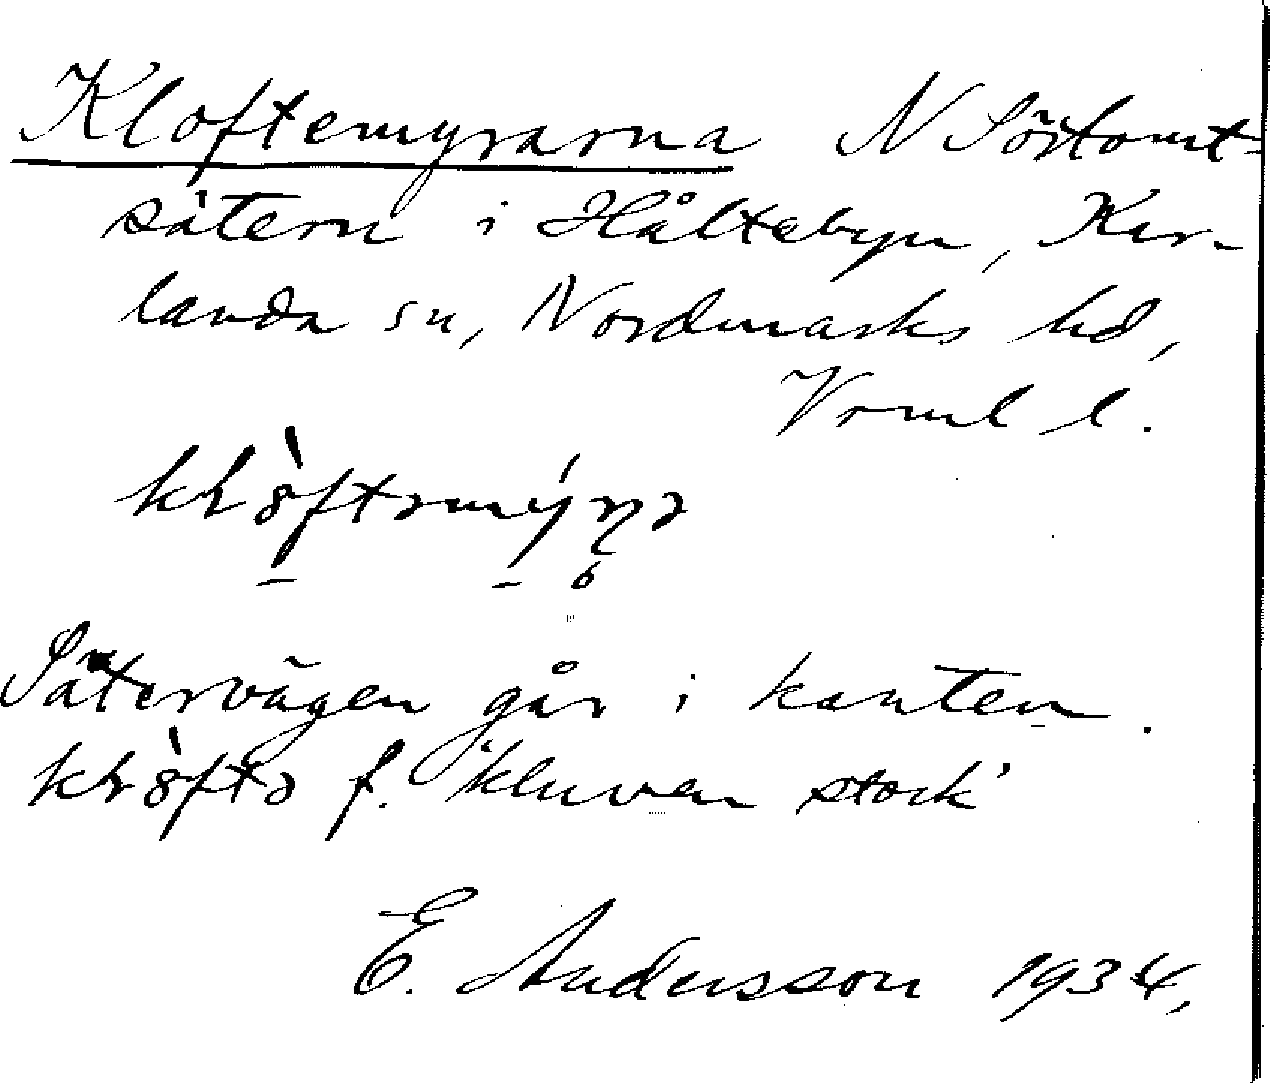 Kloftemyrarna N Sörtomt-
sätern i Håltebyn, Kar-
landa sn, Nordmarks hd,
Vrml l.
Sätervägen går i kanten.
f. 'kluven stock'
E. Andersson 1934,